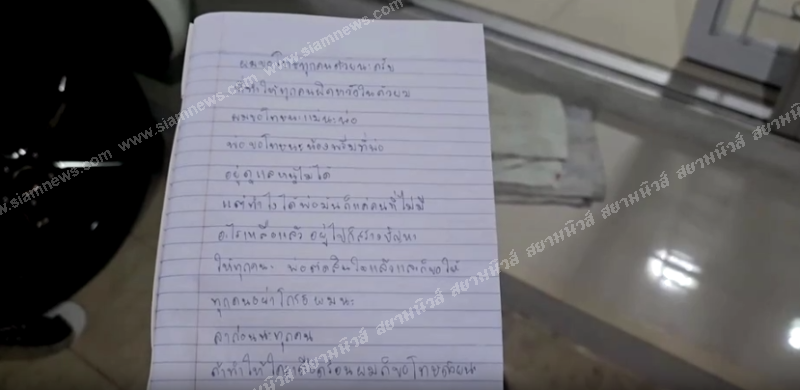 ผมขอโทษทุกคนด้วยนะครับ
ที่ทำให้ทุกคนผิดหวังในตัวผม
ผมขอโทษนะแม่นะพ่อ
พ่อขอโทษนะน้องพรีมที่พ่อ
อยู่ดูแลหนูไม่ได้
แต่ทำไงได้พ่อมันก็แค่คนที่ไม่มี
อะไรเหลือแล้ว อยู่ไปก็สร้างปัญหา
ให้ทุกคน พ่อตัดสินใจแล้วและก็ขอให้
ทุกคนอย่าโกรธผมนะ
ลาก่อนนะทุกคน
ถ้าทำให้ใครเดือดร้อนผมก็ขอโทษด้วยนะ
www.siamnews.com
สยามนิวส์ สยามนิวส์ สยามนิวส์ สยามนิวส์